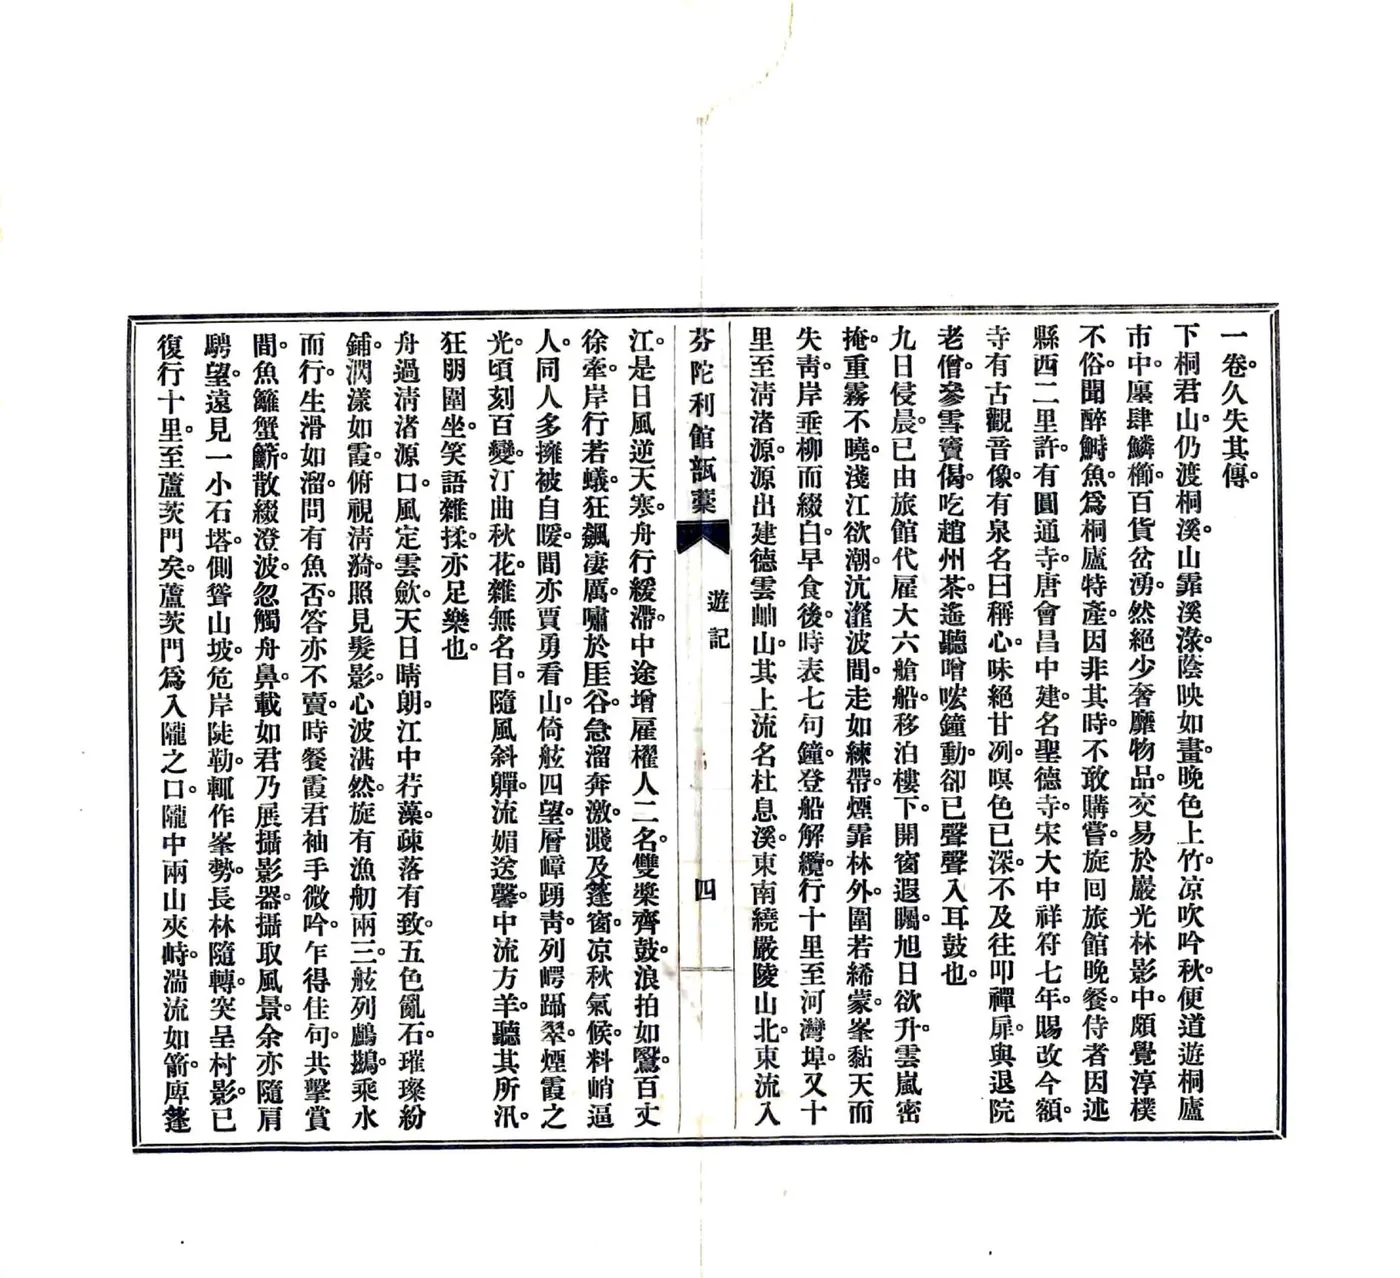 一卷。久失其傳。
下桐君山。仍渡桐溪。山霏溪淥。蔭映如畫。晚色上竹。凉吹吟秋。便道遊桐廬
市中。廛肆鱗櫛。百貨岔湧。然絕少奢靡物品。交易於巖光林影中。頗覺淳樸
不俗。聞醉鲥魚。爲桐廬特產。因非其時。不敢購嘗。旋囘旅館晚餐。侍者因述
縣西二里許。有圓通寺。唐會昌中建。名聖德寺。宋大中祥符七年。賜改今額。
寺有古觀音像。有泉名曰稱心。味絕甘冽。暝色已深。不及往叩禪扉。與退院
老僧。參雪竇偈。吃趙州茶。遙聽噌吰鐘動。卻已聲聲入耳鼓也。
九日侵晨。已由旅館代雇大六艙船。移泊樓下。開窗遐矚。旭日欲升。雲嵐密
掩。重霧不曉。淺江欲潮。沆瀣波間。走如練帶。煙霏林外。圍若絺蒙。峯黏天而
失青。岸垂柳而綴白。早食後。時表七句鐘。登船解纜。行十里至河灣埠。又十
里至淸渚源。源出建德雲岫山。其上流名杜息溪。東南繞嚴陵山北。東流入
芬陀利館瓿藁
遊記
四
江。是日風逆天寒。舟行緩滯。中途增雇櫂人二名。雙槳齊鼓。浪拍如鷖。百丈
徐牽。岸行若蟻。狂飆淒厲。嘯於厓谷。急溜奔激。濺及篷窗。凉秋氣候。料峭逼
人。同人多擁被自暖。間亦賈勇看山。倚舷四望。層嶂踴靑。列崿躡翠。煙霞之
光。頃刻百變。汀曲秋花。雜無名目。隨風斜嚲。流媚送馨。中流方羊。聽其所汎。
狂朋圍坐。笑語雜揉。亦足樂也。
舟過淸渚源口。風定雲歛。天日晴朗。江中荇藻。疎落有致。五色亂石。璀璨紛
鋪。潤漾如霞。俯視淸漪。照見髮影。心波湛然。旋有漁舠兩三。舷列鸕鷀。乘水
而行。生滑如溜。問有魚否。答亦不賣。時餐霞君袖手微吟。乍得佳句。共擊賞
間。魚籬蟹籪。散綴澄波。忽觸舟鼻。載如君乃展攝影器。攝取風景。余亦隨肩
騁望。遠見一小石塔。側聳山坡。危岸陡勒。輒作峯勢。長林隨轉。突呈村影。已
復行十里。至蘆茨門矣。蘆茨門爲入隴之口。隴中兩山夾峙。湍流如箭。庳篷